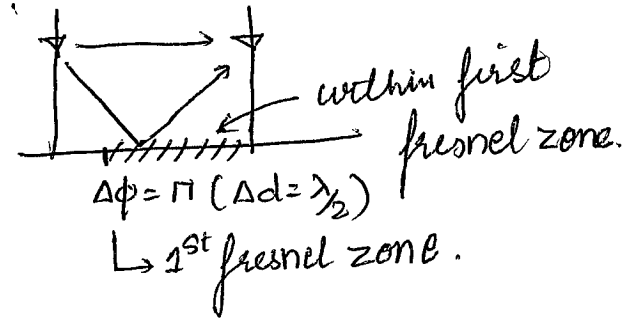 within first
fresnel zone.
Δϕ = π (Δd = λ/2)
↳ 1st fresnel zone.